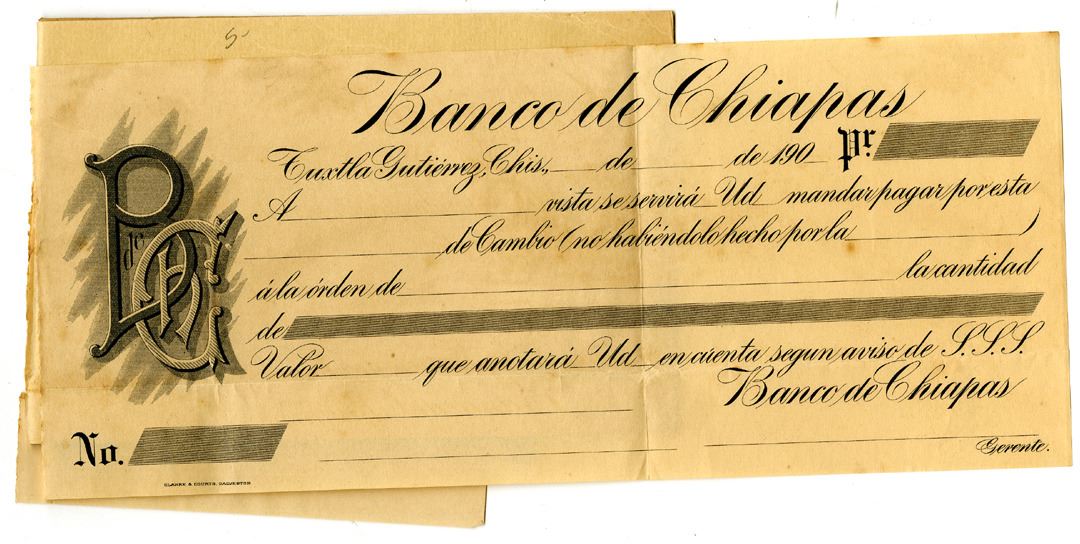 S
Banco de Chiapas
Tuxtla Gutiérrez, Chis., de de 190 Pr.
A vista se servirá Ud mandar pagar por esta
de Cambio (no habiéndolo hecho por la )
á la órden de la cantidad
de
Valor que anotará Ud en cuenta segun aviso de S.S.S.
Banco de Chiapas
No.
Gerente.
CLARKE & COURTS, GALVESTON